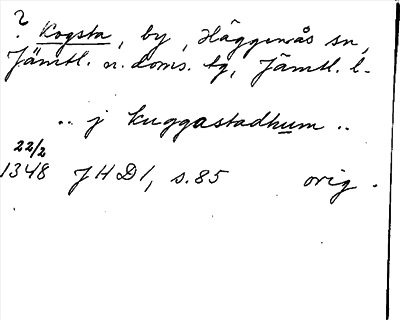 ?
Kogsta, by, Häggenås sn,
Jämtl. n. doms. tg, Jämtl. l.
.. j kuggastadhum ..
22/2
1348 JHD 1, s. 85 orig.